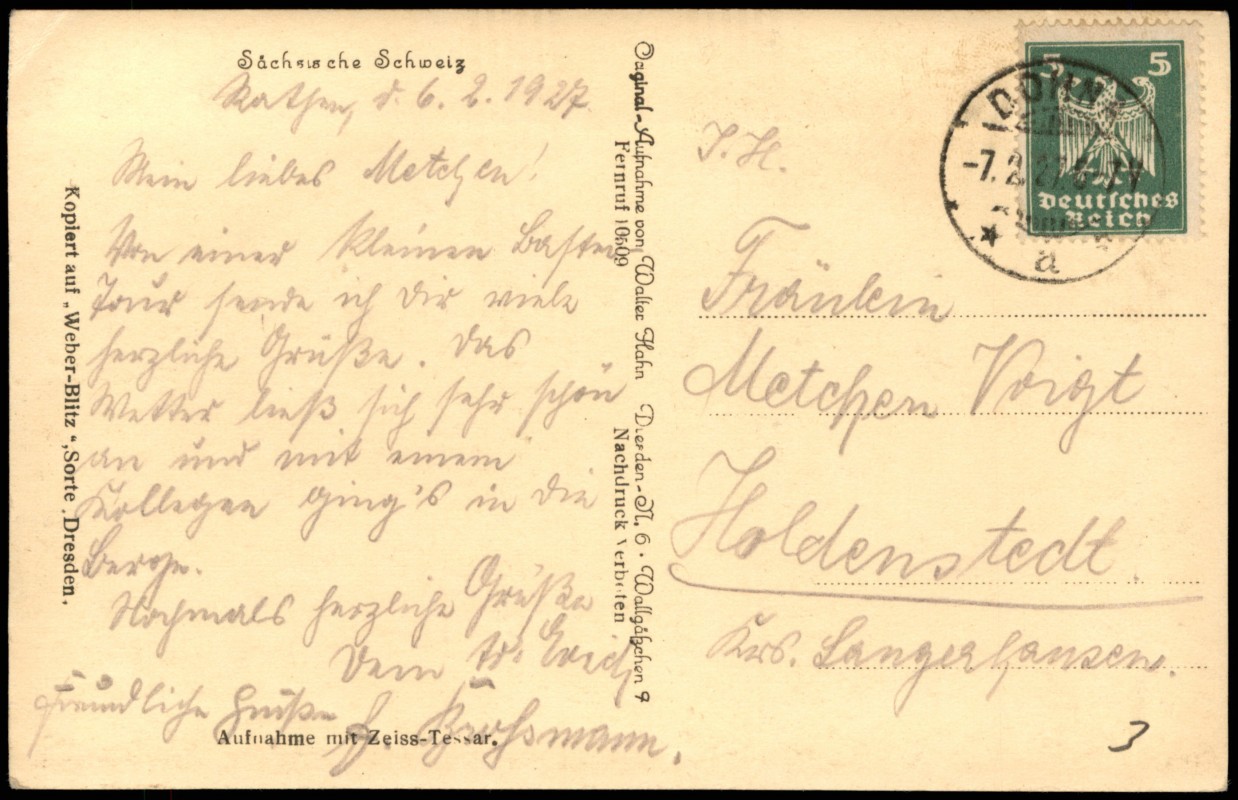 Sächsische Schweiz
Rathen, d. 6.2.1927.
Mein liebes Metchen!
Von einer kleinen Bastei
Tour sende ich Dir viele
herzliche Grüße. Das
Wetter ließ sich sehr schön
an und mit einem
Kollegen ging's in die
Berge.
Nochmals herzliche Grüße
Dein Erich
Freundliche Grüße
Aufnahme mit Zeiss-Tessar.
Kopiert auf „Weber-Blitz“, Sorte, Dresden.
Original-Aufnahme von Walter Hahn Dresden-N. 6 · Wallgäßchen 9
Fernruf 10609 Nachdruck verboten
5 5
Deutsches
Reich
DOHNA
-7.2.27.
a
Fräulein
Metchen Voigt
Holdenstedt
Krs. Sangerhausen.
3